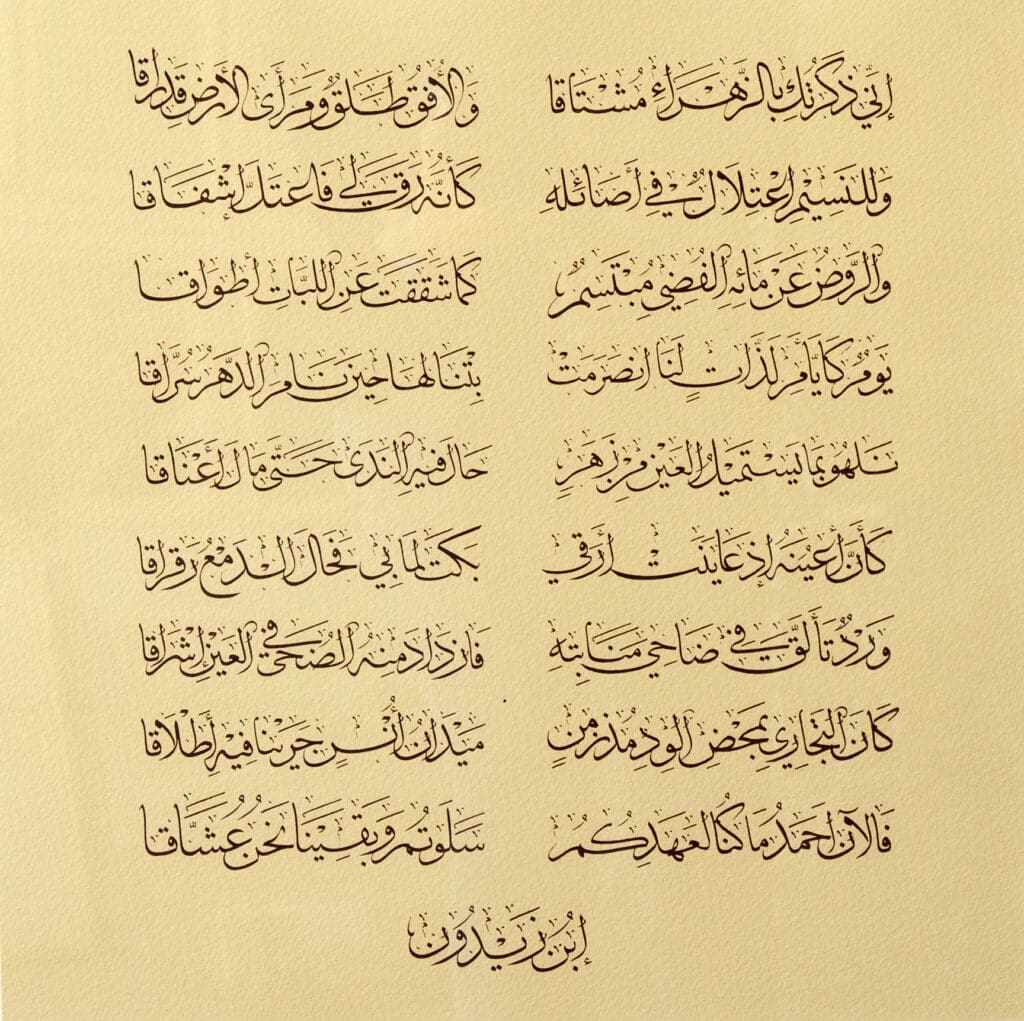 إني ذكرتك بالزهراء مشتاقا والأفق طلق ومرأى الأرض قد راقا
وللنسيم اعتلال في أصائله كأنه رق لي فاعتل إشفاقا
والروض عن مائه الفضي مبتسم كما شققت عن اللبات أطواقا
يوم كأيام لذات لنا انصرمت بتنا لها حين نام الدهر سراقا
نلهو بما يستميل العين من زهر جال فيه الندى حتى مال أعناقا
كأن أعينه إذ عاينت أرقي بكت لما بي فجال الدمع رقراقا
ورد تألق في ضاحي منابته فازداد منه الضحى في العين إشراقا
كان التجاري بمحض الود مذ زمن ميدان أنس جرينا فيه أطلاقا
فالآن أحمد ما كنا لعهدكم سلوتم وبقينا نحن عشاقا
إبن زيدون